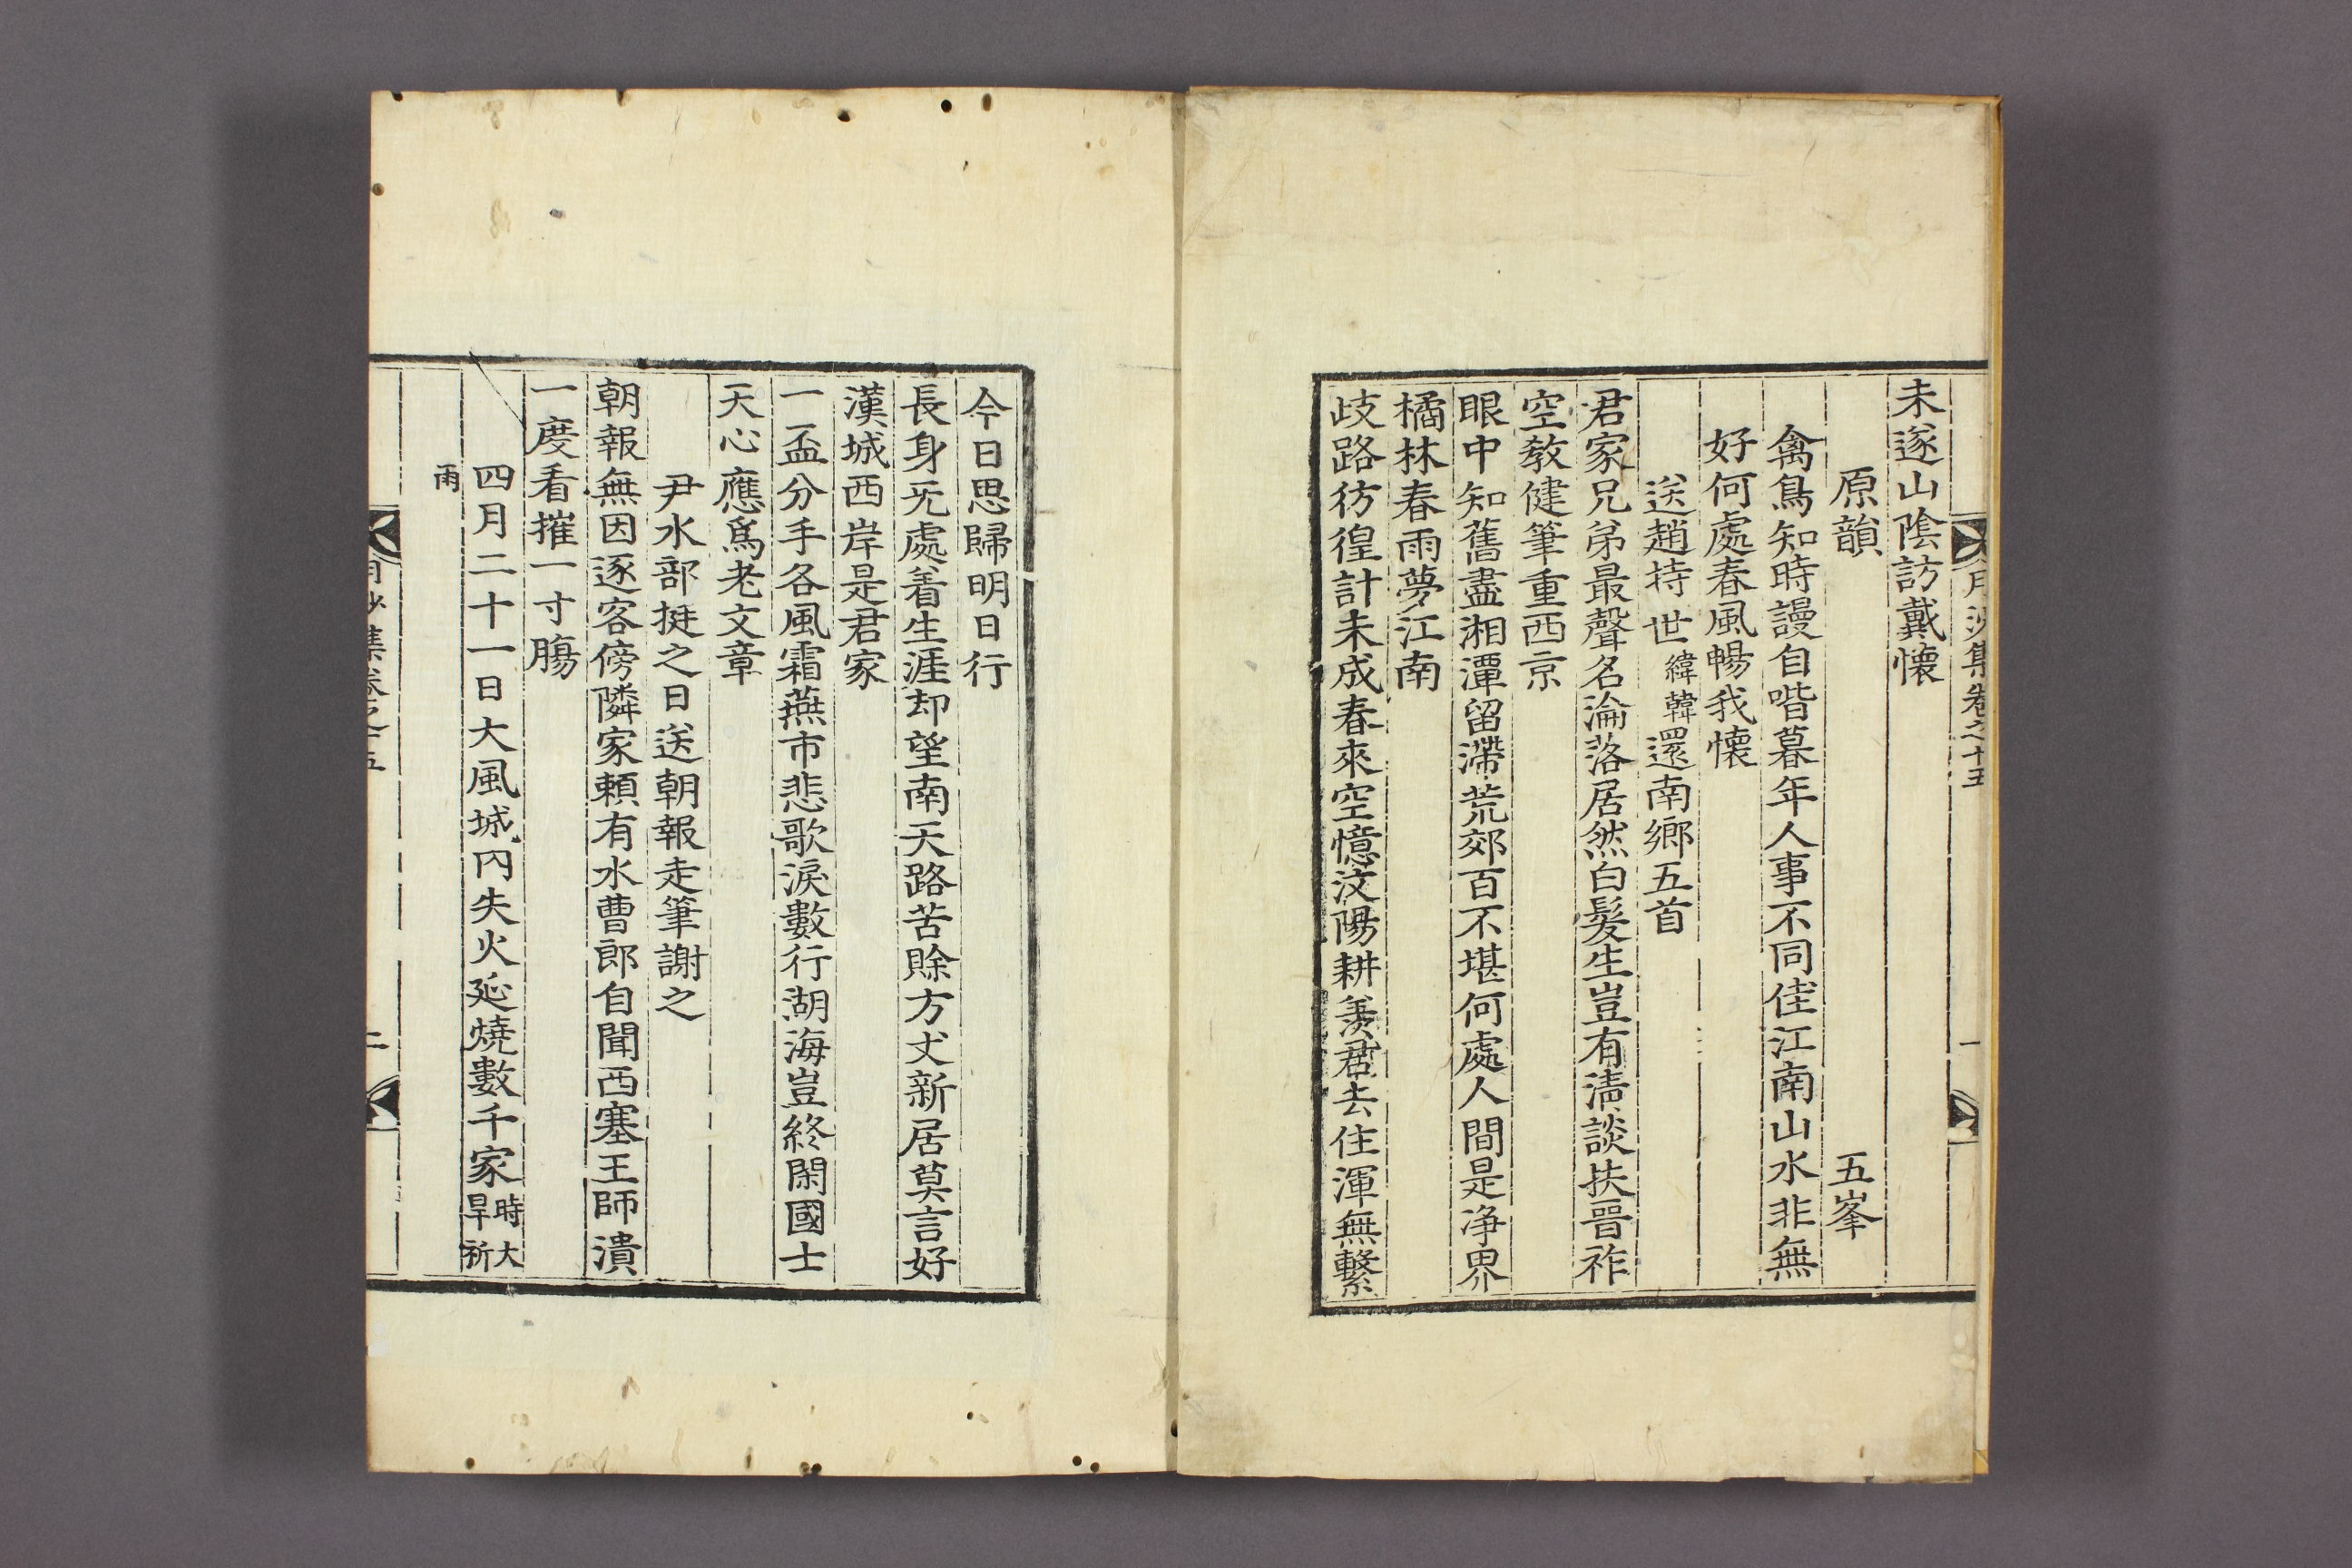 月沙集卷之十五
一
未遂山陰訪戴懷
原韻 五峯
禽鳥知時謾自喈暮年人事不同佳江南山水非無
好何處春風暢我懷
送趙持世緯韓還南鄉五首
君家兄弟最聲名淪落居然白髮生豈有淸談扶晉祚
空教健筆重西京
眼中知舊盡湘潭留滯荒郊百不堪何處人間是净界
橘林春雨夢江南
歧路彷徨計未成春來空憶汶陽耕羨君去住渾無繫
今日思歸明日行
長身旡處着生涯却望南天路苦賒方丈新居莫言好
漢城西岸是君家
一盃分手各風霜燕市悲歌淚數行湖海豈終閑國士
天心應爲老文章
尹水部挺之日送朝報走筆謝之
朝報無因逐客傍隣家頼有水曹郎自聞西塞王師潰
一度看摧一寸膓
四月二十一日大風城內失火延燒數千家時大旱祈
雨
月沙集卷之十五
二